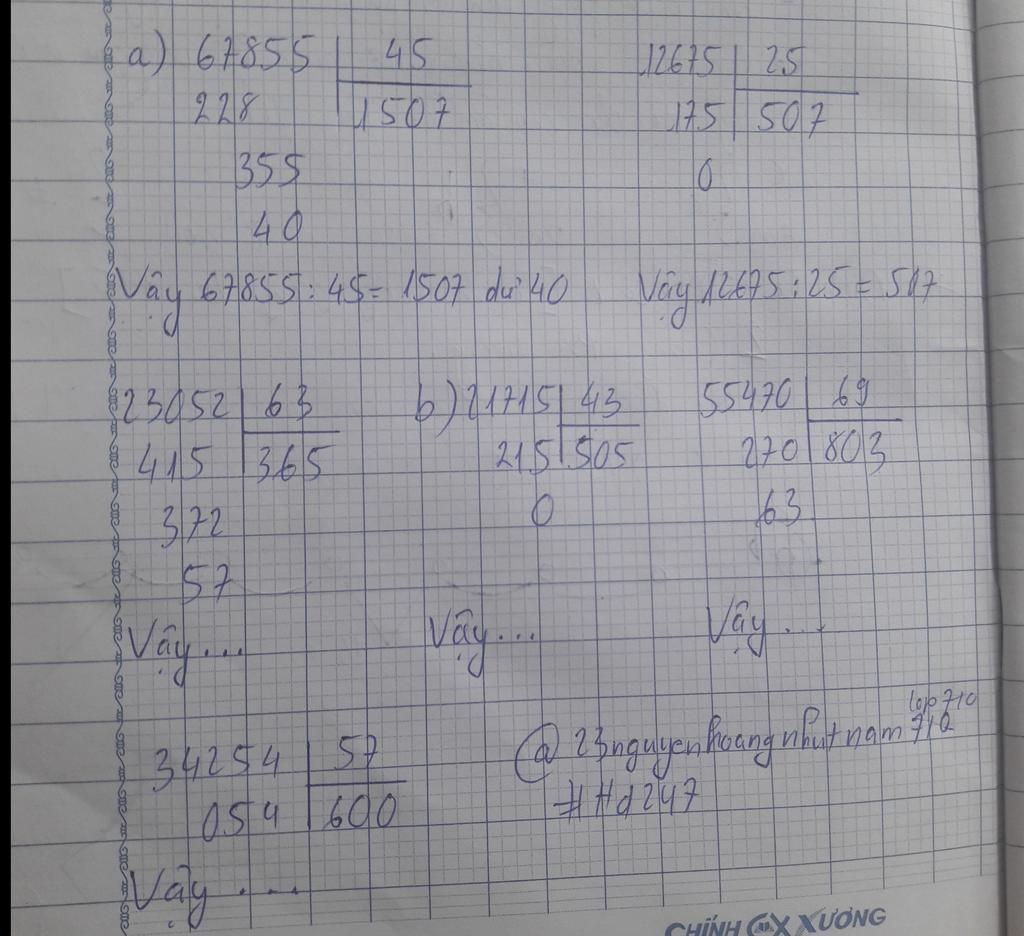 a) 67855 45 12675 25
228 1507 175 507
355 0
40
Vậy 67855 : 45 = 1507 dư 40 Vậy 12675 : 25 = 517
23052 63 b) 21715 43 55470 69
415 365 215 505 270 803
372 0 63
57
Vậy... Vậy... Vậy...
lop 710
34254 57 @ 23nguyenhoangnhutnam 710
054 600 #Hd247
Vậy ....
CHÍNH XƯƠNG